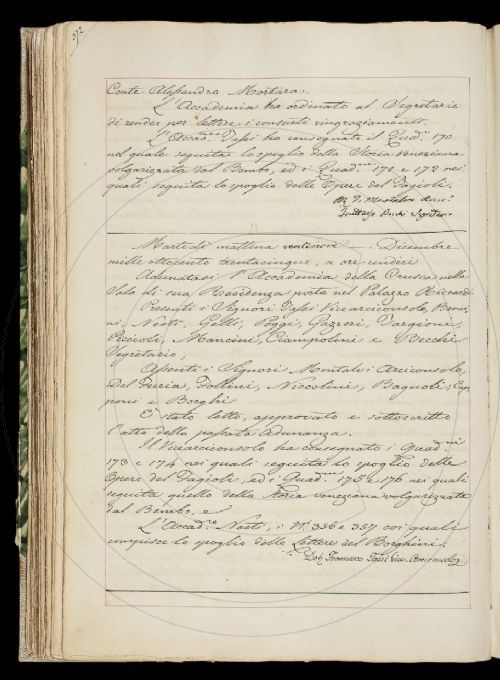 372
Conte Alessandro Mortara.
L'Accademia ha ordinato al Segretario
di render per lettere i consueti ringraziamenti.
L'Accad.co Tassi ha consegnato il Quad.o 170
nel quale seguita lo spoglio della Storia Veneziana
volgarizzata dal Bembo, ed i Quad.ni 171 e 172 nei
quali seguita lo spoglio delle Opere del Fagioli.
Segretario
Martedì mattina ventinove Dicembre
mille ottocento trentacinque, a ore undici
Adunatasi l'Accademia della Crusca nella
Sala di sua Residenza posta nel Palazzo Riccardi
Presenti i Signori Tassi Vicearciconsolo, Benci
ni, Nesti, Gelli, Poggi, Gazzeri, Targioni,
Piccioli, Mancini, Ciampolini e Becchi
Segretario,
Assenti i Signori Montalvi Arciconsolo,
Del Furia, Follini, Niccolini, Bagnoli, Cap
poni e Borghi
È stato letto, approvato e sottoscritto
l'atto della passata Adunanza.
Il Vicearciconsolo ha consegnato i Quad.ni
173 e 174 nei quali seguita lo spoglio delle
Opere del Fagioli, ed i Quad.ni 175 e 176 nei quali
seguita quello della Storia veneziana volgarizzata
dal Bembo, e
L'Accad.co Nesti, i N.i 356 e 357 coi quali
compisce lo spoglio delle Lettere del Borghini.
Dott. Francesco Tassi Vice-Arciconsolo